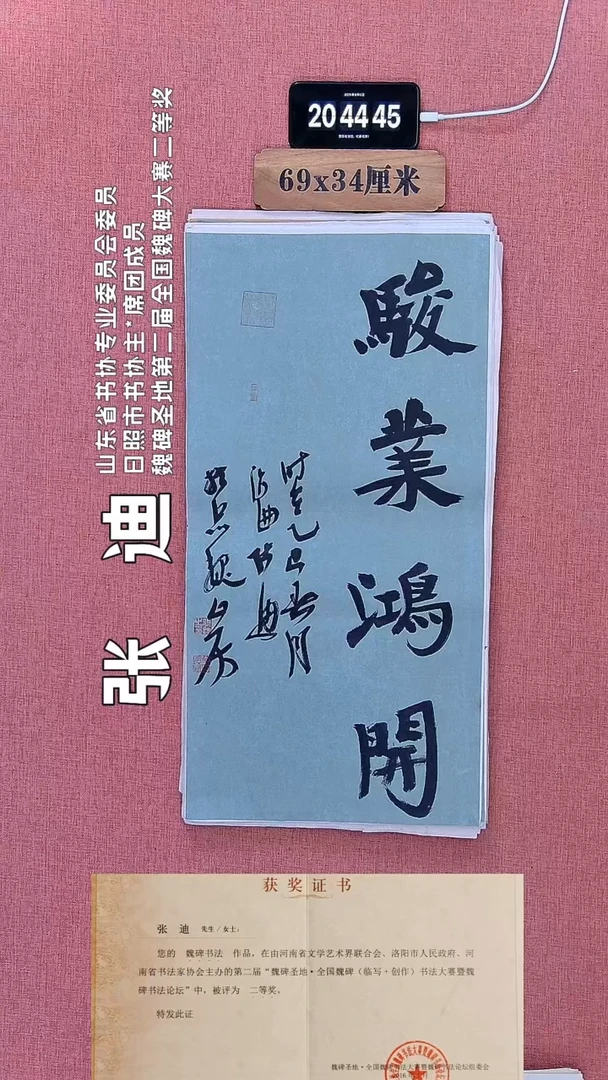 20 44 45
69x34厘米
山东省书协专业委员会委员
日照市书协主·席团成员
魏碑圣地第二届全国魏碑大赛二等奖
张 迪
駿業鴻開
时在乙巳春月
获奖证书
张 迪 先生/女士:
您的 魏碑书法 作品，在由河南省文学艺术界联合会、洛阳市人民政府、河
南省书法家协会主办的第二届“魏碑圣地·全国魏碑（临写+创作）书法大赛暨魏
碑书法论坛”中，被评为 二等奖。
特发此证
魏碑圣地·全国魏碑书法大赛暨魏碑书法论坛组委会